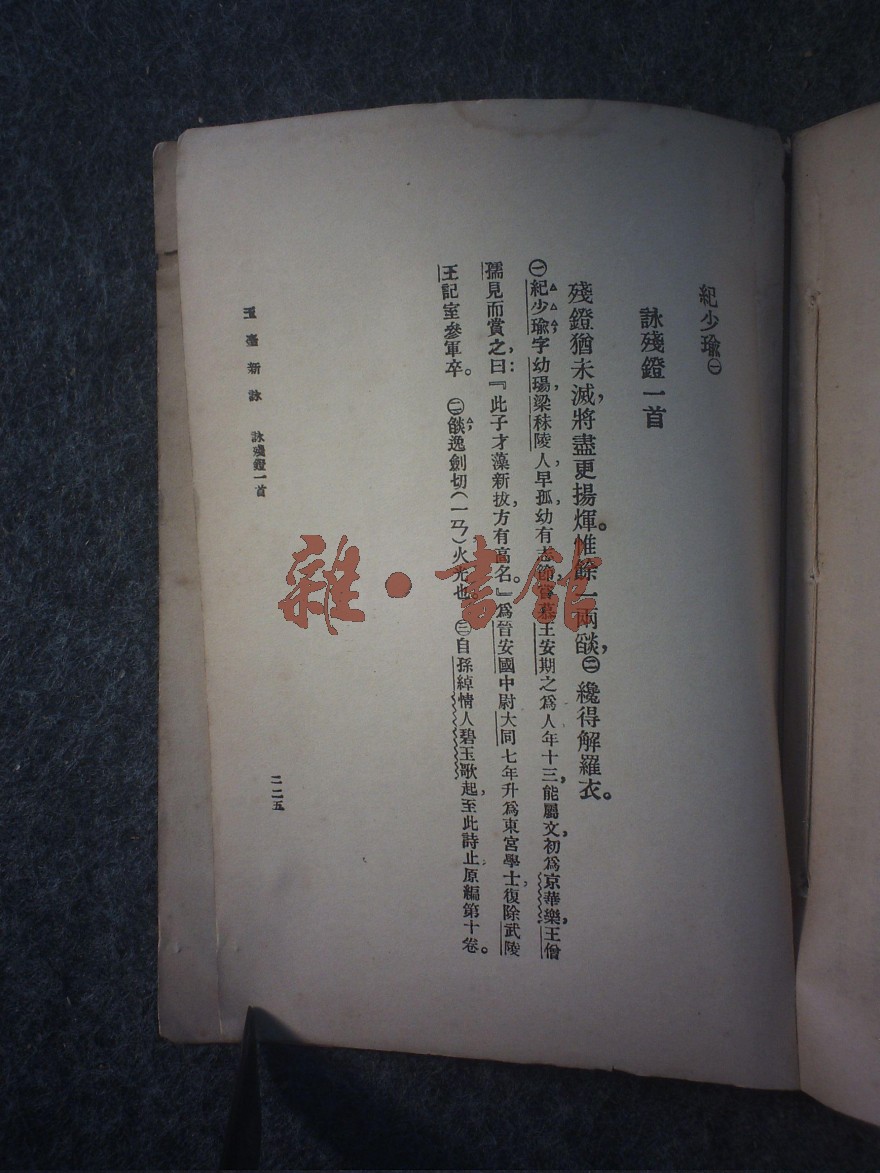 紀少瑜㊀
詠殘鐙一首
殘鐙猶未滅，將盡更揚煇。惟餘一兩燄，㊁纔得解羅衣。
㊀紀少瑜，字幼瑒，梁秣陵人，早孤，幼有志節，嘗慕王安期之爲人，年十三，能屬文，初爲京華樂，王僧
孺見而賞之，曰：『此子才藻新拔，方有高名。』爲晉安國中尉，大同七年，升爲東宮學士，復除武陵
王記室參軍，卒。　㊁燄，逸劍切（ㄧㄢ）火光也。㊂自孫綽情人碧玉歌起，至此詩止，原編第十卷。
玉臺新詠　詠殘鐙一首
二二五
雜·書館